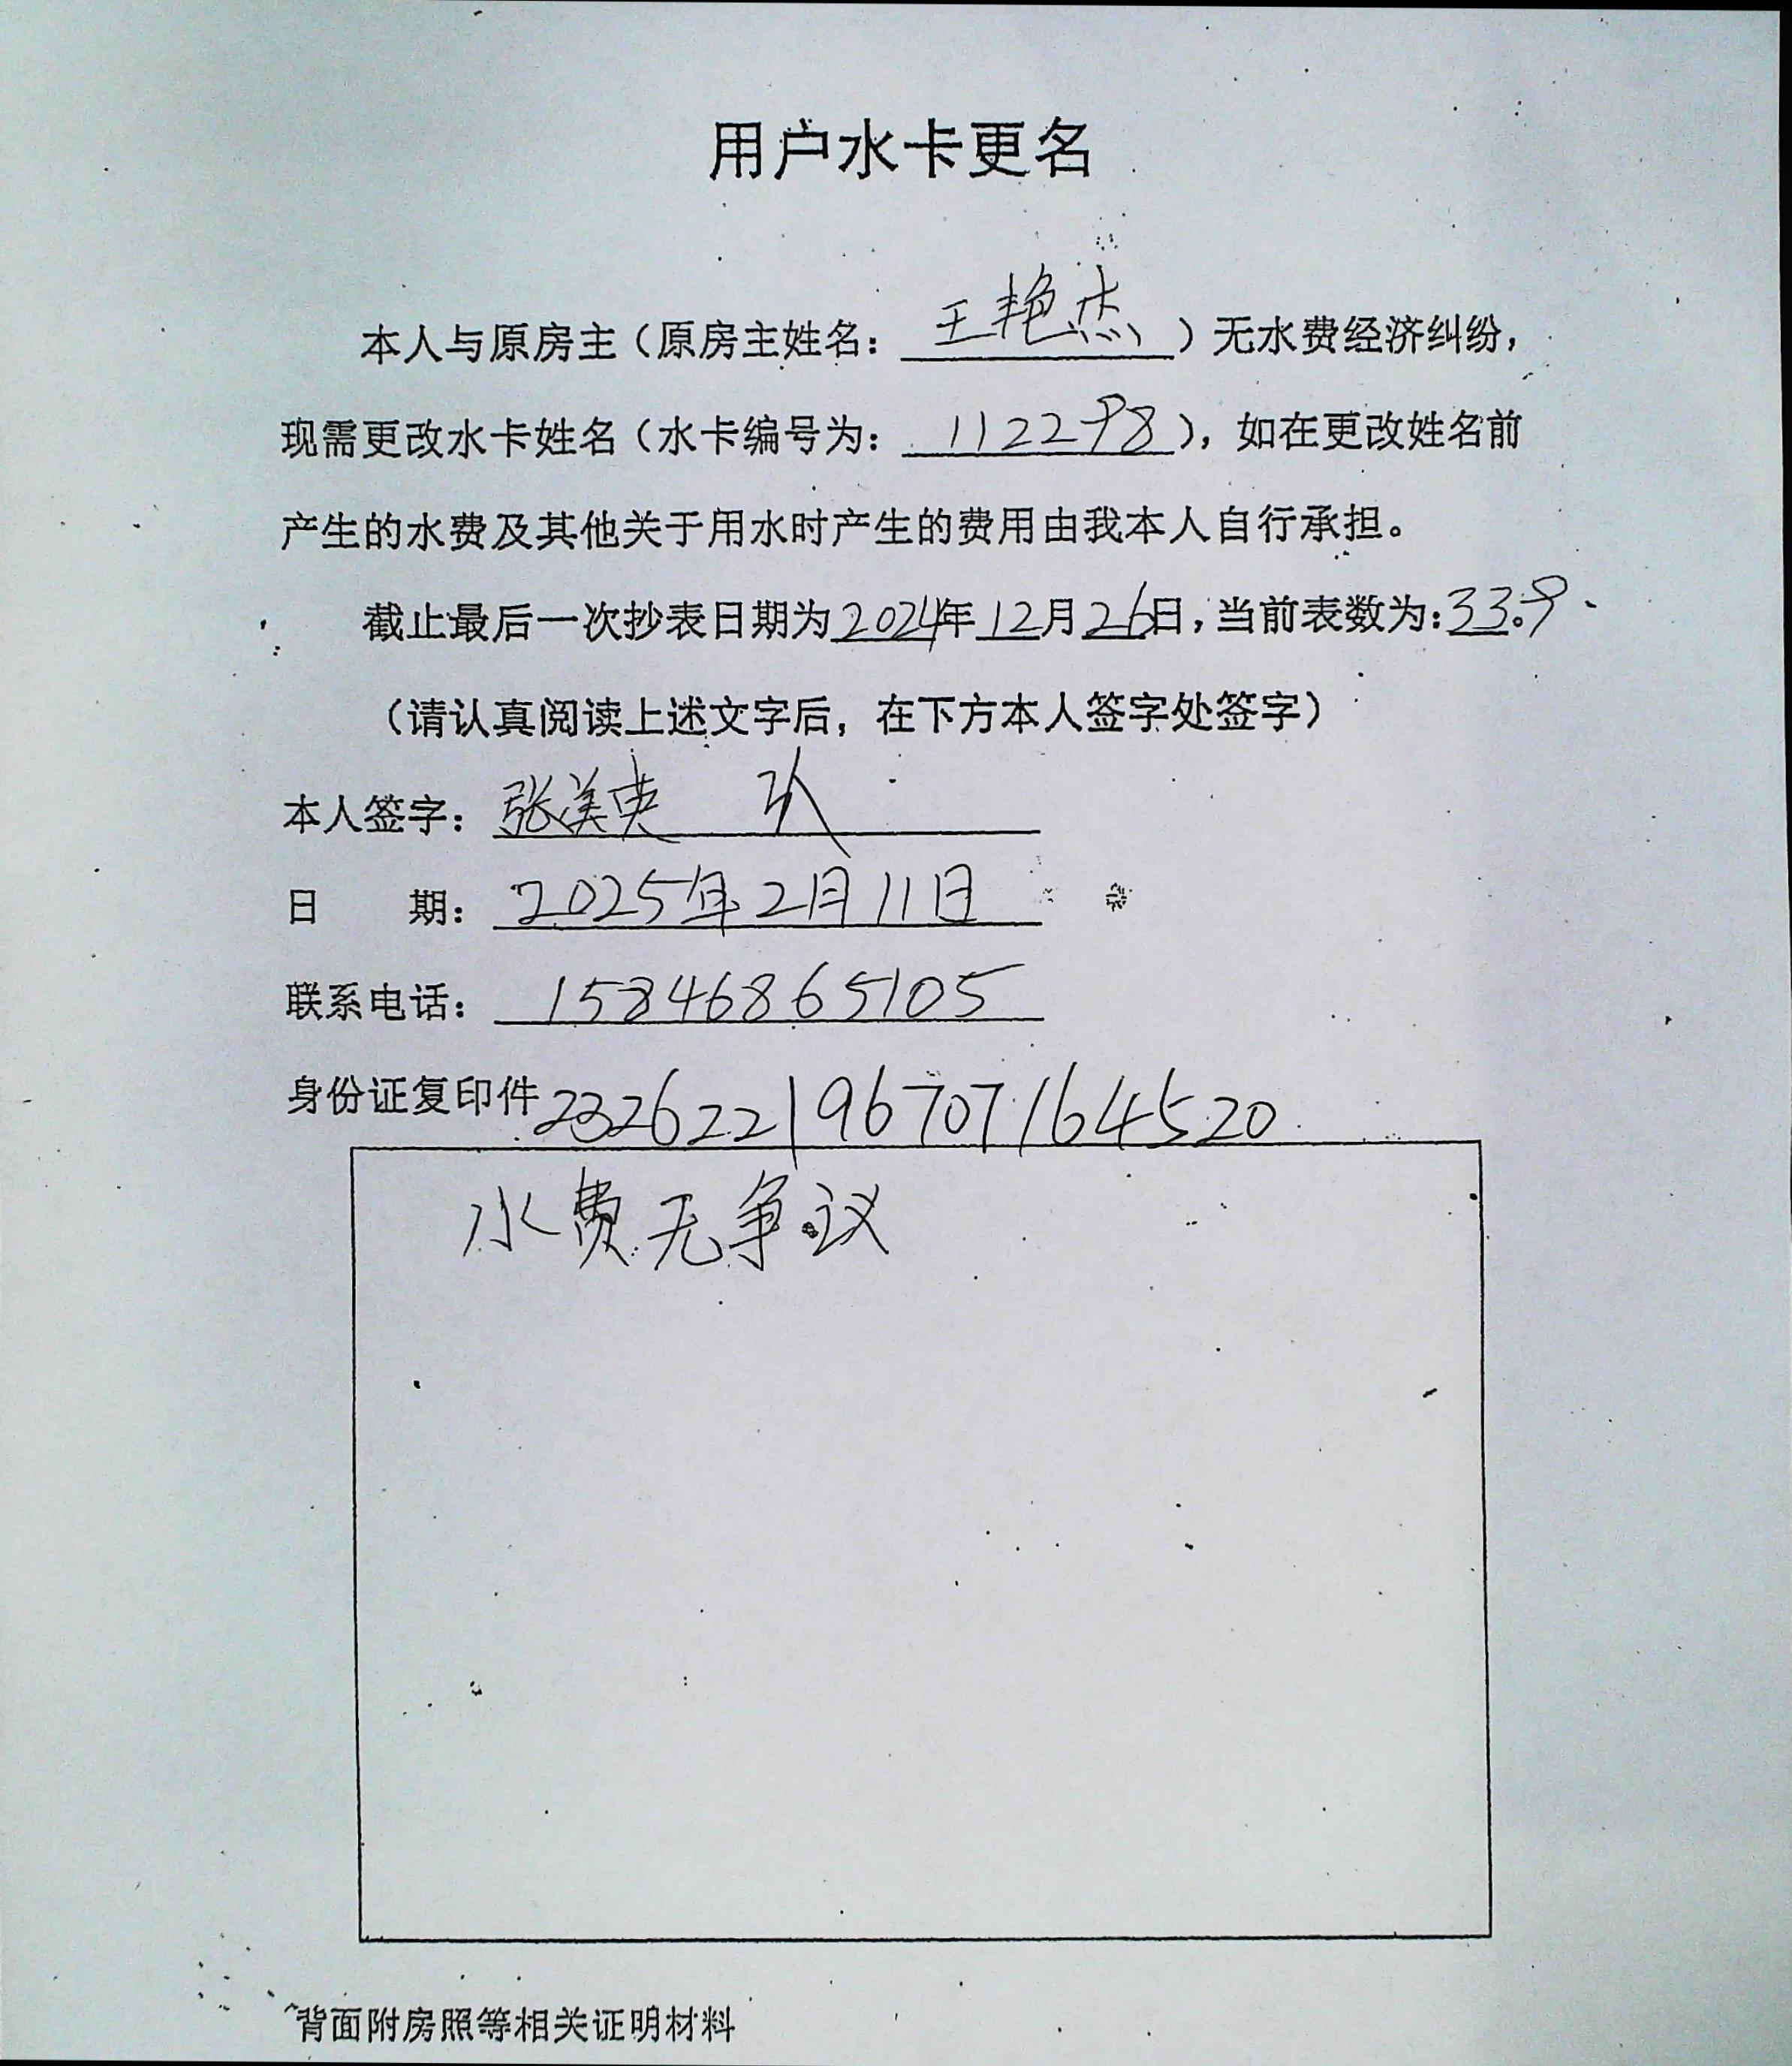 用户水卡更名
本人与原房主（原房主姓名：王艳杰）无水费经济纠纷，
现需更改水卡姓名（水卡编号为：1122798），如在更改姓名前
产生的水费及其他关于用水时产生的费用由我本人自行承担。
截止最后一次抄表日期为2024年12月26日，当前表数为：33.9
（请认真阅读上述文字后，在下方本人签字处签字）
本人签字：张美英
日 期：2025年2月11日
联系电话：15846865105
身份证复印件232622196707164520
水费无争议
背面附房照等相关证明材料